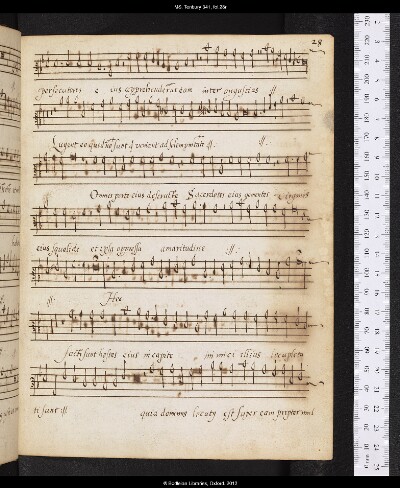 MS. Tenbury 341, fol.28r
28
persecutores eius apprehenderut eam inter angustias :||:
Lugent eo quod no sunt q veniant ad solempnitate :||: :||:
Omnes porte eius destructe Sacerdotes eius gementes virgines
eius squalide et ipsa oppressa amaritudine :||:
:||: Heth
facti sunt hostes eius in capite inimici illius locupleta
ti sunt :||: quia dominus locutus est super eam propter mul
© Bodleian Libraries, Oxford, 2012